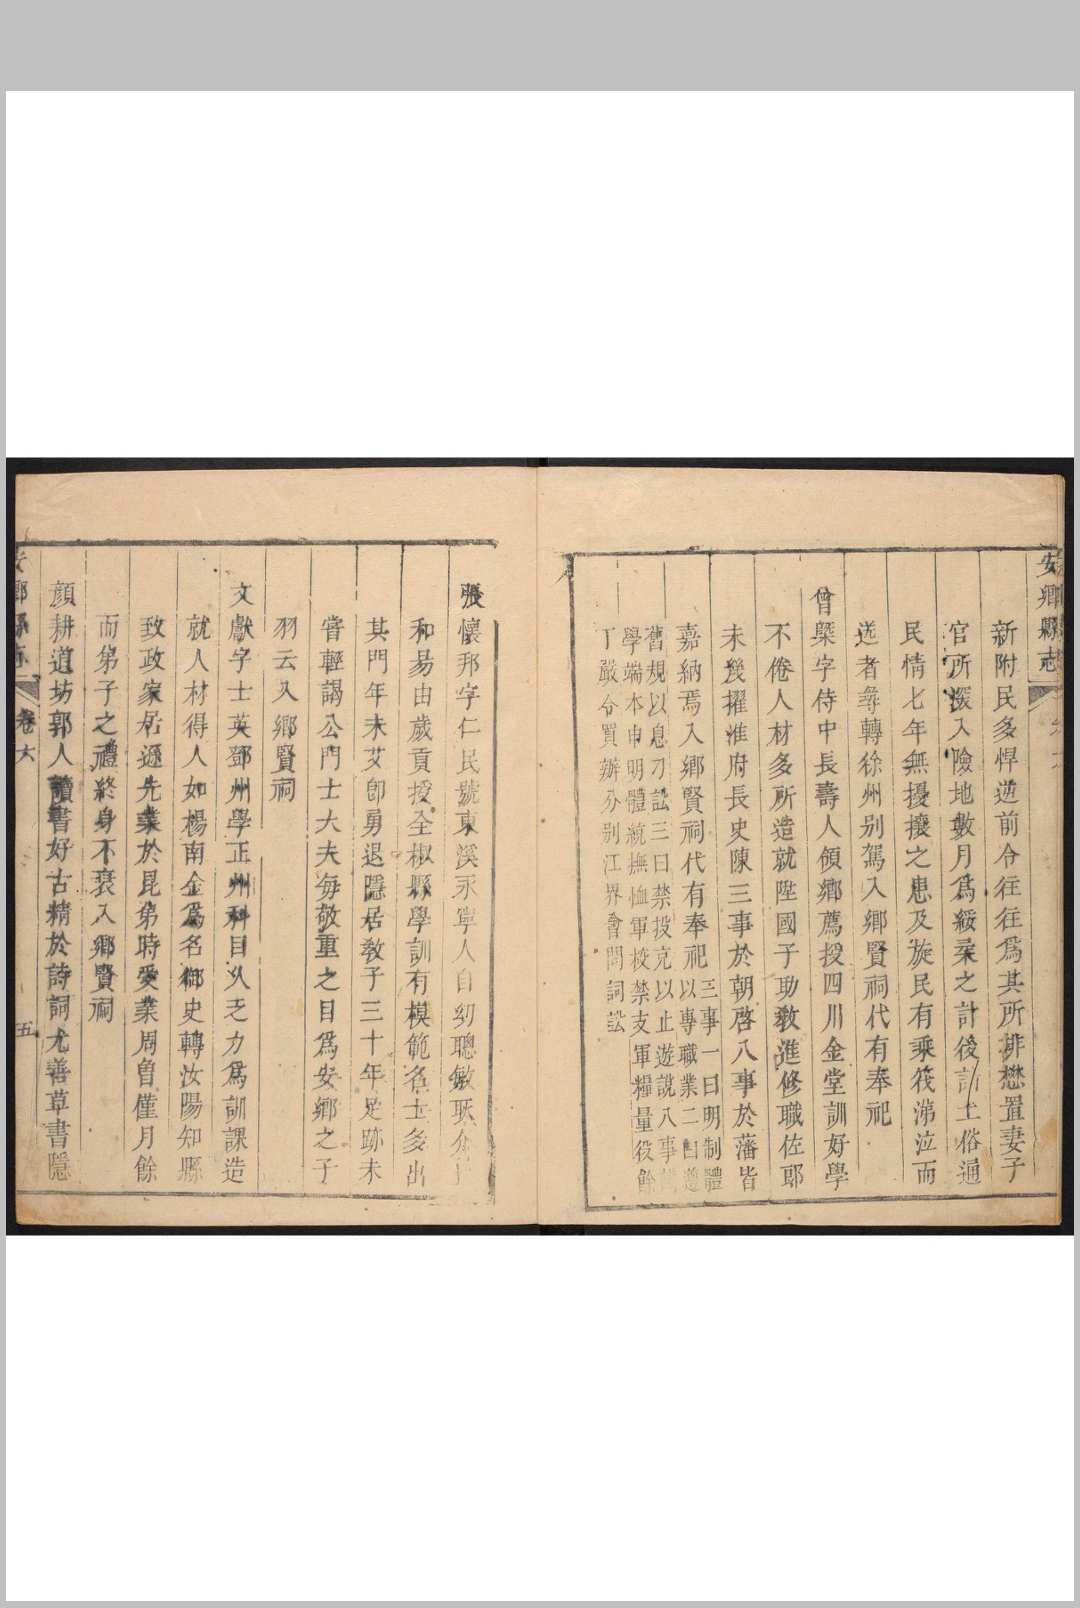 安鄉縣志
新附民多悍逆前令往往爲其所排懋置妻子
官所深入險地數月爲綏柔之計後土俗通
民情七年無擾攘之患及旋民有乘筏涕泣而
送者尋轉徐州别駕入鄉賢祠代有奉祀
曾㮣字侍中長壽人領鄉薦授四川金堂訓好學
不倦人材多所造就陞國子助敎進修職佐郎
未幾擢淮府長史陳三事於朝啓八事於藩皆
嘉納焉入鄉賢祠代有奉祀
三事一曰明制體
以專職業二曰遵
舊規以息刁訟三曰禁投充以止遊說八事
學端本申明體統撫恤軍校禁支軍糧量役餘
丁嚴令買辦分别江界會問詞訟
張懷邦字仁民號東溪永寧人自幼聰敏耿介
和易由歲貢授全椒縣學訓有模範名士多出
其門年未艾卽勇退隱居敎子三十年足跡未
嘗輕謁公門士大夫每敬重之目爲安鄉之子
羽云入鄉賢祠
文獻字士英鄧州學正州科目久乏力爲訓課造
就人材得人如楊南金爲名御史轉汝陽知縣
致政家居遜先業於昆弟時愛業周魯僅月餘
而弟子之禮終身不衰入鄉賢祠
顔耕道坊郭人讀書好古精於詩詞尤善草書隱
卷六
五